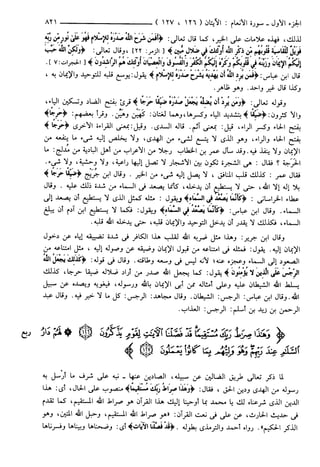 الجزء الأول - سورة الأنعام : الآيتان (١٢٦ ، ١٢٧) ٨٢١
لذلك، فهذه علامات على الخير، كما قال تعالى: ﴿أَفَمَن شَرَحَ اللَّهُ صَدْرَهُ لِلْإِسْلَامِ فَهُوَ عَلَى نُورٍ مِّن رَّبِّهِ
فَوَيْلٌ لِّلْقَاسِيَةِ قُلُوبُهُم مِّن ذِكْرِ اللَّهِ أُولَئِكَ فِي ضَلَالٍ مُّبِينٍ﴾ [الزمر: ٢٢]، وقال تعالى: ﴿وَلَكِنَّ اللَّهَ حَبَّبَ
إِلَيْكُمُ الْإِيمَانَ وَزَيَّنَهُ فِي قُلُوبِكُمْ وَكَرَّهَ إِلَيْكُمُ الْكُفْرَ وَالْفُسُوقَ وَالْعِصْيَانَ أُولَئِكَ هُمُ الرَّاشِدُونَ﴾ [الحجرات: ٧].
قال ابن عباس: ﴿فَمَن يُرِدِ اللَّهُ أَن يَهْدِيَهُ يَشْرَحْ صَدْرَهُ لِلْإِسْلَامِ﴾ يقول: يوسع قلبه للتوحيد والإيمان به ،
وكذا قال غير واحد. وهو ظاهر.
وقوله تعالى: ﴿وَمَن يُرِدْ أَن يُضِلَّهُ يَجْعَلْ صَدْرَهُ ضَيِّقًا حَرَجًا﴾ قرئ بفتح الضاد وتسكين الياء،
والأكثرون: ﴿ضَيِّقًا﴾ بتشديد الياء وكسرها، وهما لغتان: كهَيْن وهَيِّن. وقرأ بعضهم: ﴿حَرِجًا﴾
بفتح الحاء وكسر الراء. قيل: بمعنى آثم. قاله السدي. وقيل: بمعنى القراءة الأخرى ﴿حَرَجًا﴾
بفتح الحاء والراء، وهو الذي لا يتسع لشيء من الهدى، ولا يخلص إليه شيء ما ينفعه من
الإيمان ولا ينفذ فيه. وقد سأل عمر بن الخطاب رجلا من الأعراب من أهل البادية من مدلج: ما
الحرجة ؟ فقال : هي الشجرة تكون بين الأشجار لا تصل إليها راعية، ولا وحشية، ولا شيء.
فقال عمر : كذلك قلب المنافق ، لا يصل إليه شيء من الخير . وقال ابن جريج ﴿ضَيِّقًا حَرَجًا﴾
بلا إله إلا الله ، حتى لا يستطيع أن يدخله، كأنما يصعد في السماء من شدة ذلك عليه . وقال
عطاء الخراساني : ﴿كَأَنَّمَا يَصَّعَّدُ فِي السَّمَاءِ﴾ ويقول : مثله كمثل الذي لا يستطيع أن يصعد إلى
السماء. وقال ابن عباس: ﴿كَأَنَّمَا يَصَّعَّدُ فِي السَّمَاءِ﴾ ويقول: فكما لا يستطيع ابن آدم أن يبلغ
السماء، فكذلك لا يقدر أن يدخل التوحيد والإيمان قلبه، حتى يدخله الله قلبه.
وقال ابن جرير: وهذا مثل ضربه الله لقلب هذا الكافر في شدة تضييقه إياه عن دخول
الإيمان إليه. يقول: فمثله في امتناعه من قبول الإيمان وضيقه عن وصوله إليه ، مثل امتناعه من
الصعود إلى السماء وعجزه عنه؛ لأنه ليس في وسعه وطاقته. وقال في قوله: ﴿كَذَلِكَ يَجْعَلُ اللَّهُ
الرِّجْسَ عَلَى الَّذِينَ لَا يُؤْمِنُونَ﴾ يقول: كما يجعل الله صدر من أراد ضلاله ضيقا حرجا، كذلك
يسلط الله الشيطان عليه وعلى أمثاله ممن أبى الإيمان بالله ورسوله، فيغويه ويصده عن سبيل
الله. وقال ابن عباس: الرجس: الشيطان. وقال مجاهد: الرجس: كل ما لا خير فيه. وقال عبد
الرحمن بن زيد بن أسلم: الرجس: العذاب.
﴿وَهَذَا صِرَاطُ رَبِّكَ مُسْتَقِيمًا قَدْ فَصَّلْنَا الْآيَاتِ لِقَوْمٍ يَذَّكَّرُونَ لَهُمْ دَارُ
السَّلَامِ عِندَ رَبِّهِمْ وَهُوَ وَلِيُّهُم بِمَا كَانُوا يَعْمَلُونَ﴾
ربع
لما ذكر تعالى طريق الضالين عن سبيله، الصادين عنها، نبه على شرف ما أرسل به
رسوله من الهدى ودين الحق ، فقال: ﴿وَهَذَا صِرَاطُ رَبِّكَ مُسْتَقِيمًا﴾ منصوب على الحال، أي: هذا
الدين الذي شرعناه لك يا محمد بما أوحينا إليك هذا القرآن هو صراط الله المستقيم، كما تقدم
في حديث الحارث، عن علي في نعت القرآن: «هو صراط الله المستقيم، وحبل الله المتين، وهو
الذكر الحكيم». رواه أحمد والترمذي بطوله . ﴿قَدْ فَصَّلْنَا الْآيَاتِ﴾ أي: وضحناها وبيناها وفسرناها